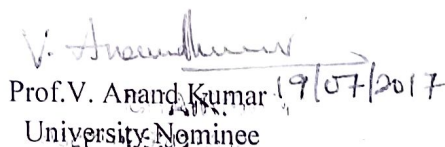 V. Anandkumar
Prof.V. Anand Kumar 19/07/2017
University Nominee